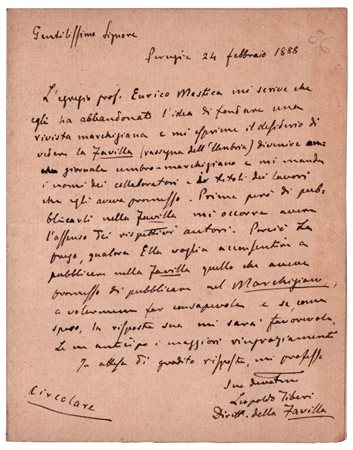 Gentilissimo Signore
Perugia 24 febbraio 1888
L'egregio prof. Enrico Mestica mi scrive che
egli ha abbandonato l'idea di fondare una
rivista marchigiana e mi esprime il desiderio di
vedere la Favilla (rassegna dell'Umbria) divenire
giornale umbro-marchigiano e mi manda
i nomi dei collaboratori e titoli dei lavori
che gli aveva promesso. Prima però di pub-
blicarli nella Favilla mi occorre avere
l'assenso dei rispettivi autori. Perciò La
prego, qualora Ella voglia acconsentire a
pubblicare nella Favilla quello che aveva
promesso di pubblicare nel Marchigiano,
a volermene far consapevole e se, come
spero, la risposta sua mi sarà favorevole,
Le ne anticipo i maggiori ringraziamenti
In attesa di gradita risposta, mi professo
Suo
Leopoldo Tiberi
Dirett. della Favilla
Circolare